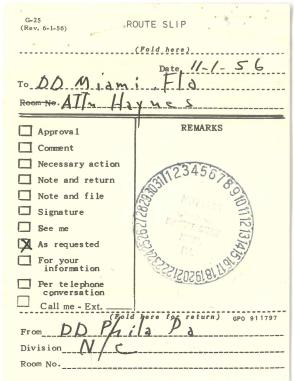 G-25
(Rev. 6-1-56)
ROUTE SLIP
(Fold here)
Date 11-1-56
To DD Miami, Fla
Room No. Attn Haynes
REMARKS
Approval
Comment
Necessary action
Note and return
Note and file
Signature
See me
As requested
For your
information
Per telephone
conversation
Call me - Ext.
1 2 3 4 5 6 7 8 9 10 11 12 13 14 15 16 17 18 19 20 21 22 23 24 25 26 27 28 29 30 31
(Fold here for return) GPO 911797
From DD Phila Pa
Division N/C
Room No.